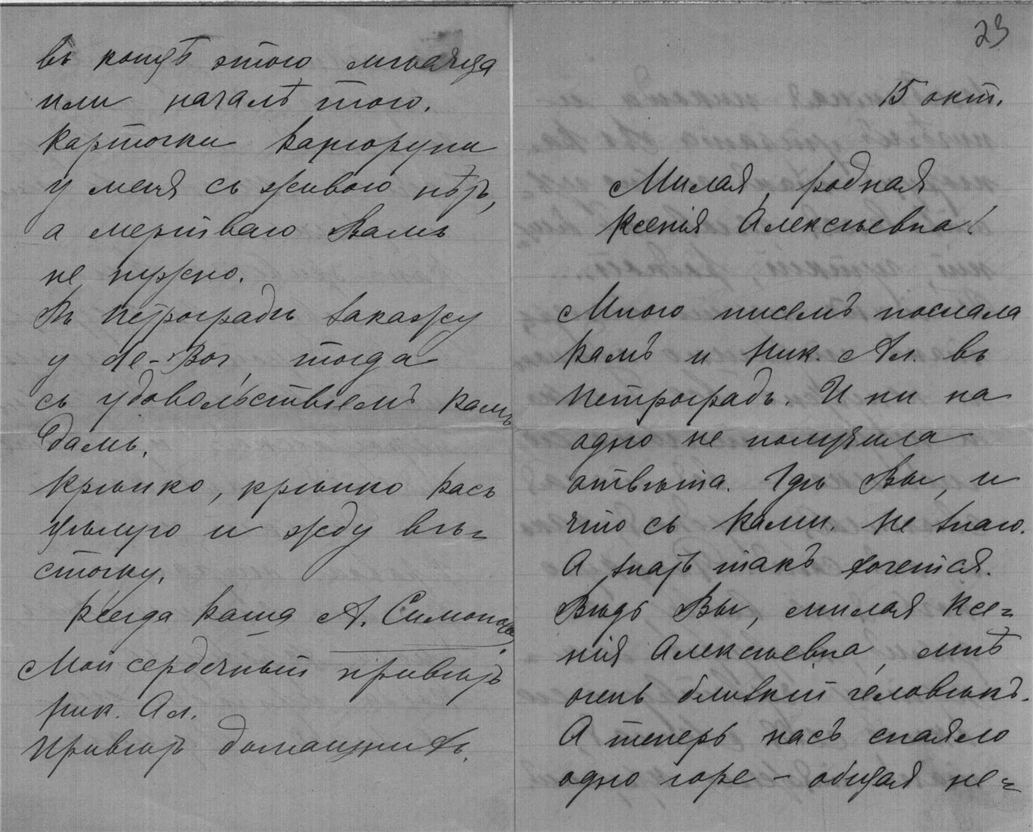 въ концѣ этого мѣсяца
или началѣ того.
Карточки
у меня съ живого нѣтъ,
а мертваго Вамъ
не нужно.
Въ Петроградѣ закажу
у тогда
съ удовольствіемъ Вамъ
дамъ.
Крѣпко, крѣпко Васъ
цѣлую и жду вѣ=
сточку.
Всегда Ваша А. Симонова
Мой сердечный привѣтъ
Ник. Ал.
Привѣтъ домашнимъ.

23
15 окт.
Милая, родная
Ксенія Алексѣевна!
Много писемъ послала
Вамъ и Ник Ал. въ
Петроградъ. И ни на
одно не получила
отвѣта. Гдѣ Вы, и
что съ Вами не знаю.
А знать такъ хочется.
Вѣдь Вы, милая Ксе=
нія Алексѣевна, мнѣ
очень близкій человѣкъ.
А теперь насъ спаяло
одно горе – общая не=